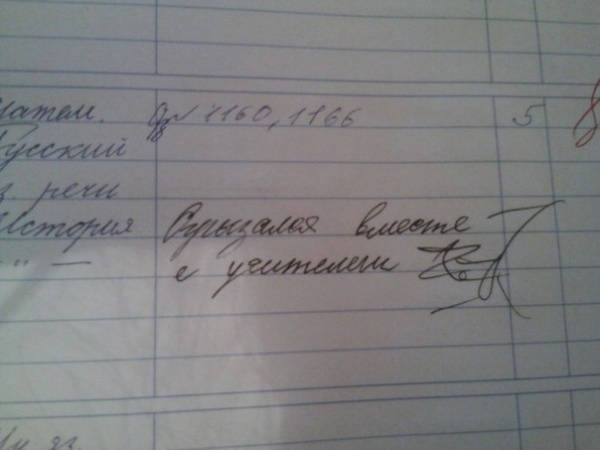 Матем. № 1160, 1166 5
Русский
з. речи
История Огрызался вместе
〃 — с учителем
Ин яз.